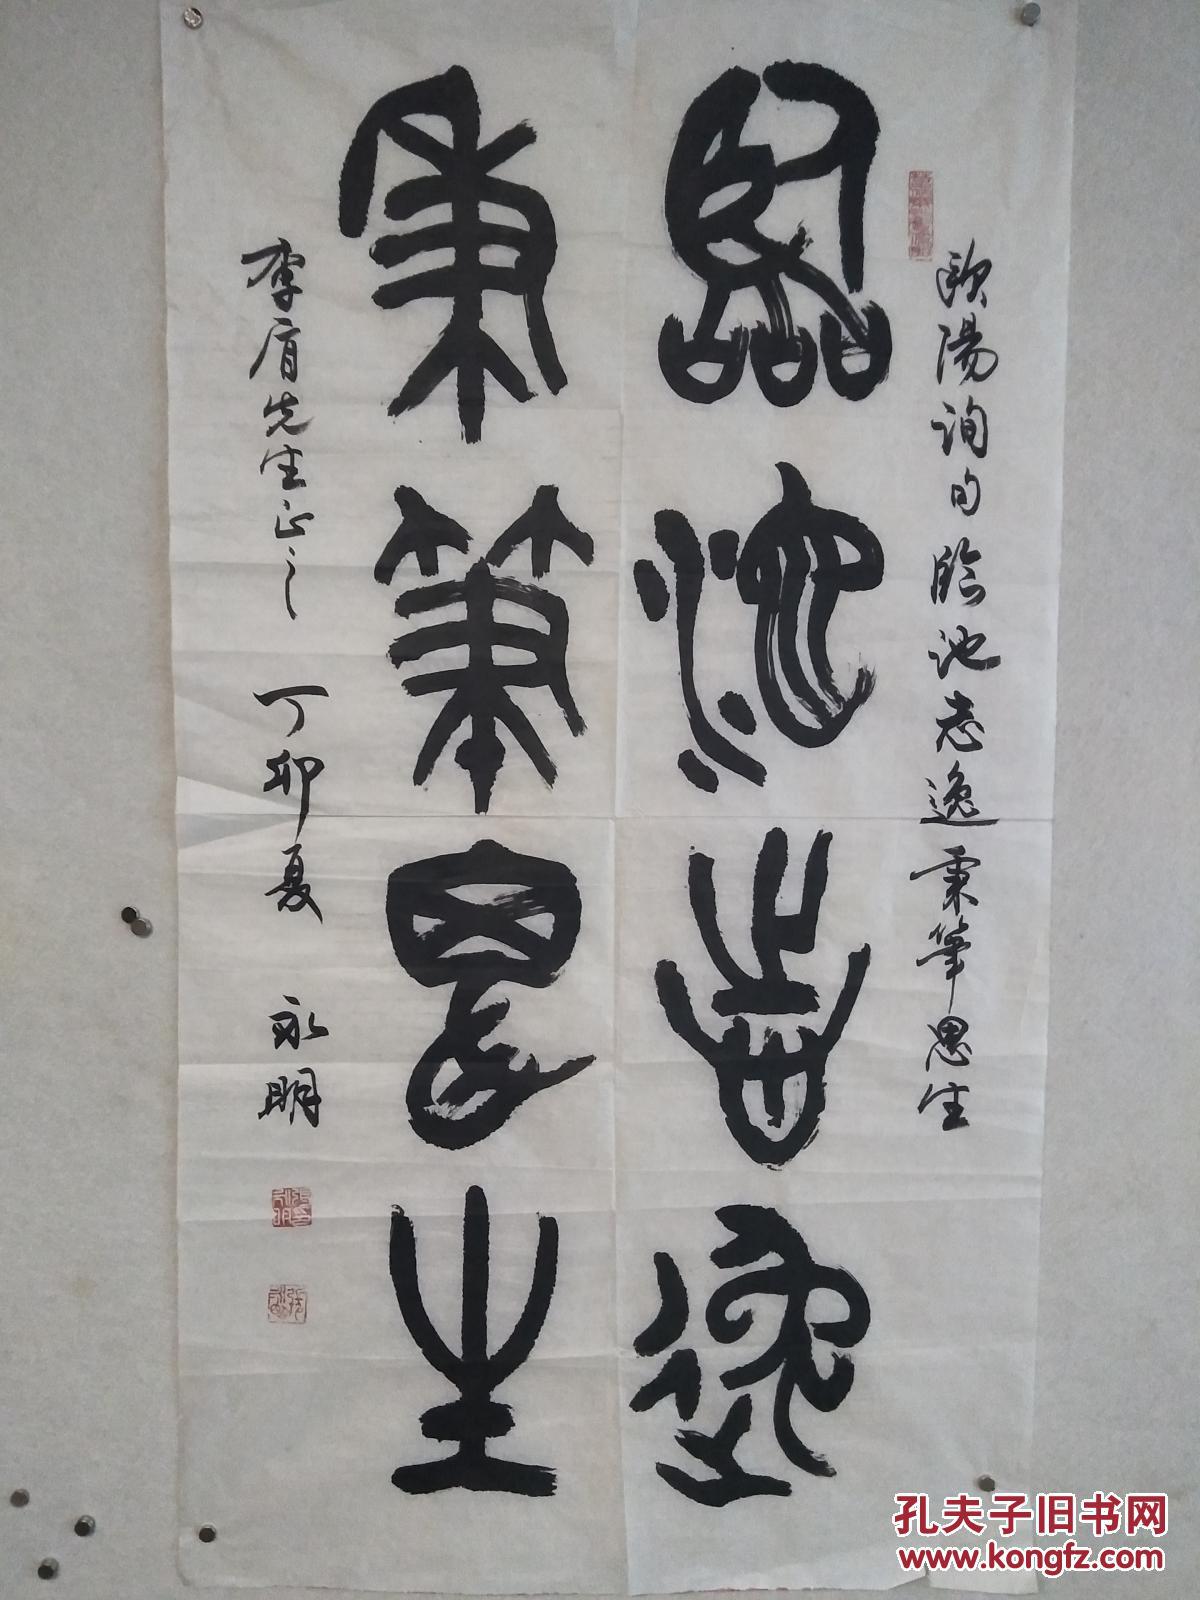 歐陽詢句臨池志逸秉筆思生
臨池志逸
秉筆思生
李肩先生正之
丁卯夏
永明
孔夫子旧书网
www.kongfz.com